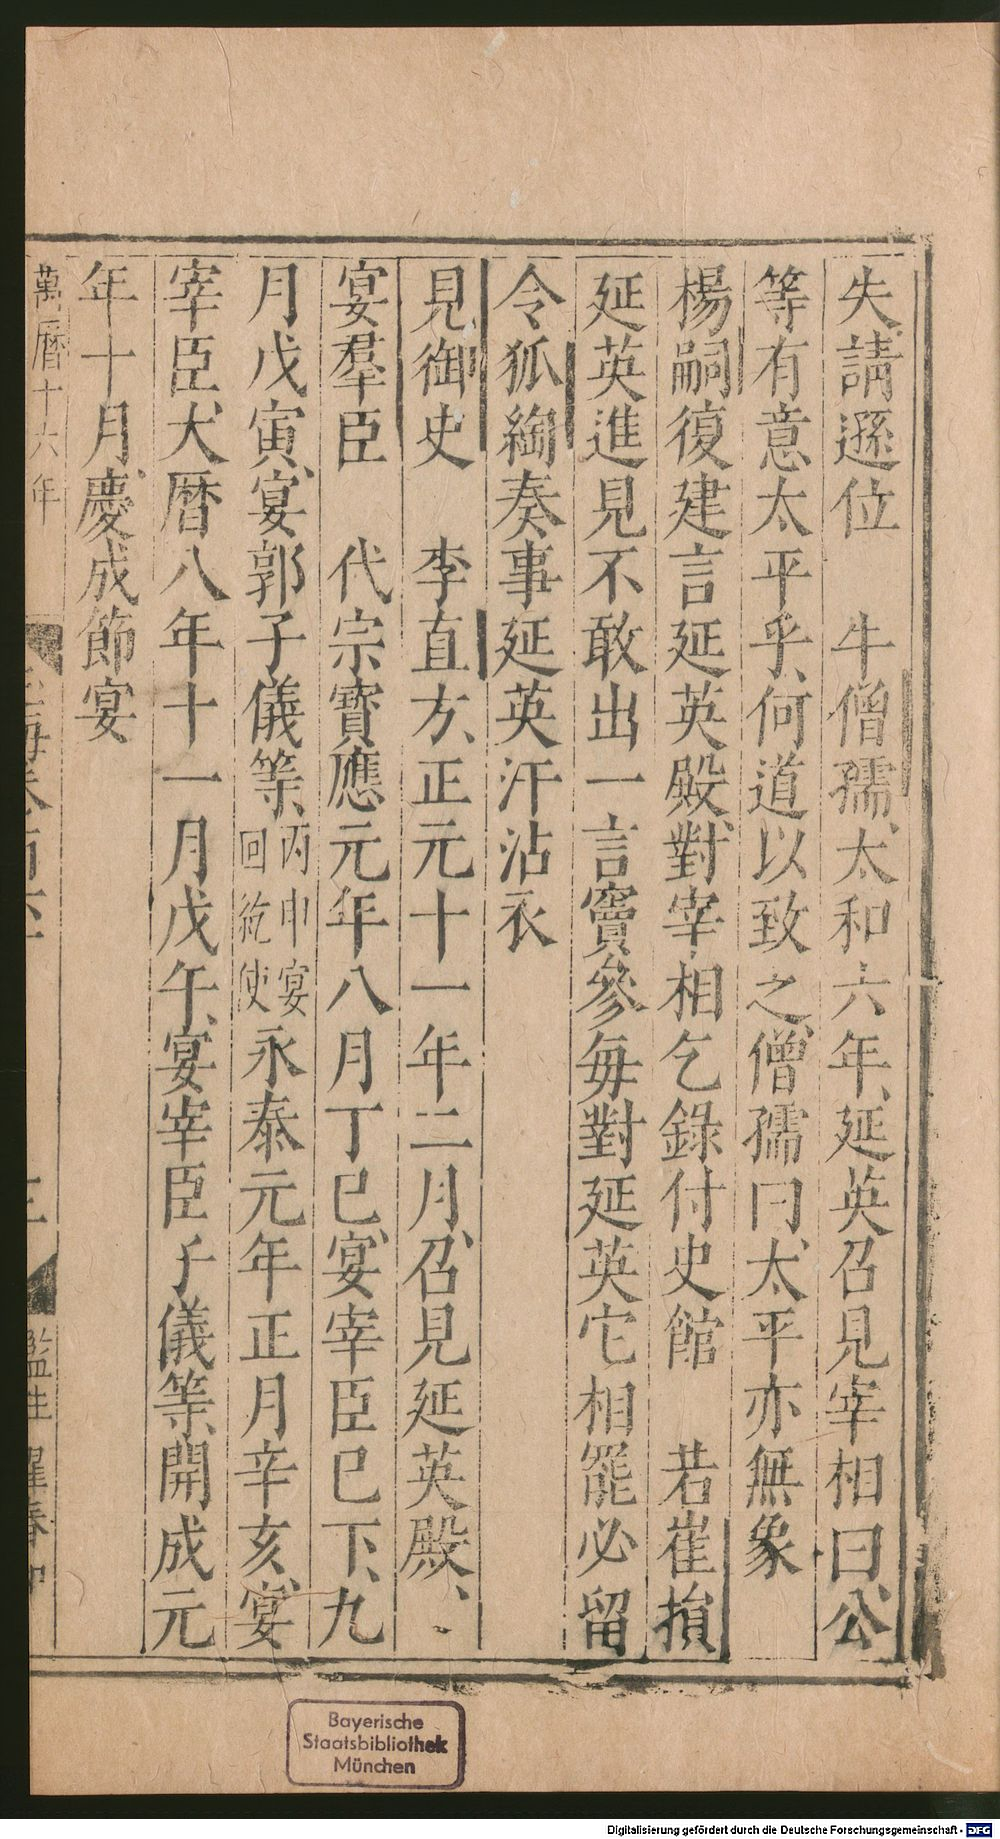 失請遜位　牛僧孺太和六年延英召見宰相曰公
等有意太平乎何道以致之僧孺曰太平亦無象
楊嗣復建言延英殿對宰相乞錄付史館　若崔損
延英進見不敢出一言竇參每對延英它相罷必留
令狐綯奏事延英汗沾衣
見御史　李直方正元十一年二月召見延英殿
宴羣臣　代宗寶應元年八月丁巳宴宰臣已下九
月戊寅宴郭子儀等丙申宴回紇使永泰元年正月辛亥宴
宰臣大曆八年十一月戊午宴宰臣子儀等開成元
年十月慶成節宴
萬曆十六年
三
監生
Bayerische
Staatsbibliothek
München
Digitalisierung gefördert durch die Deutsche Forschungsgemeinschaft - DFG